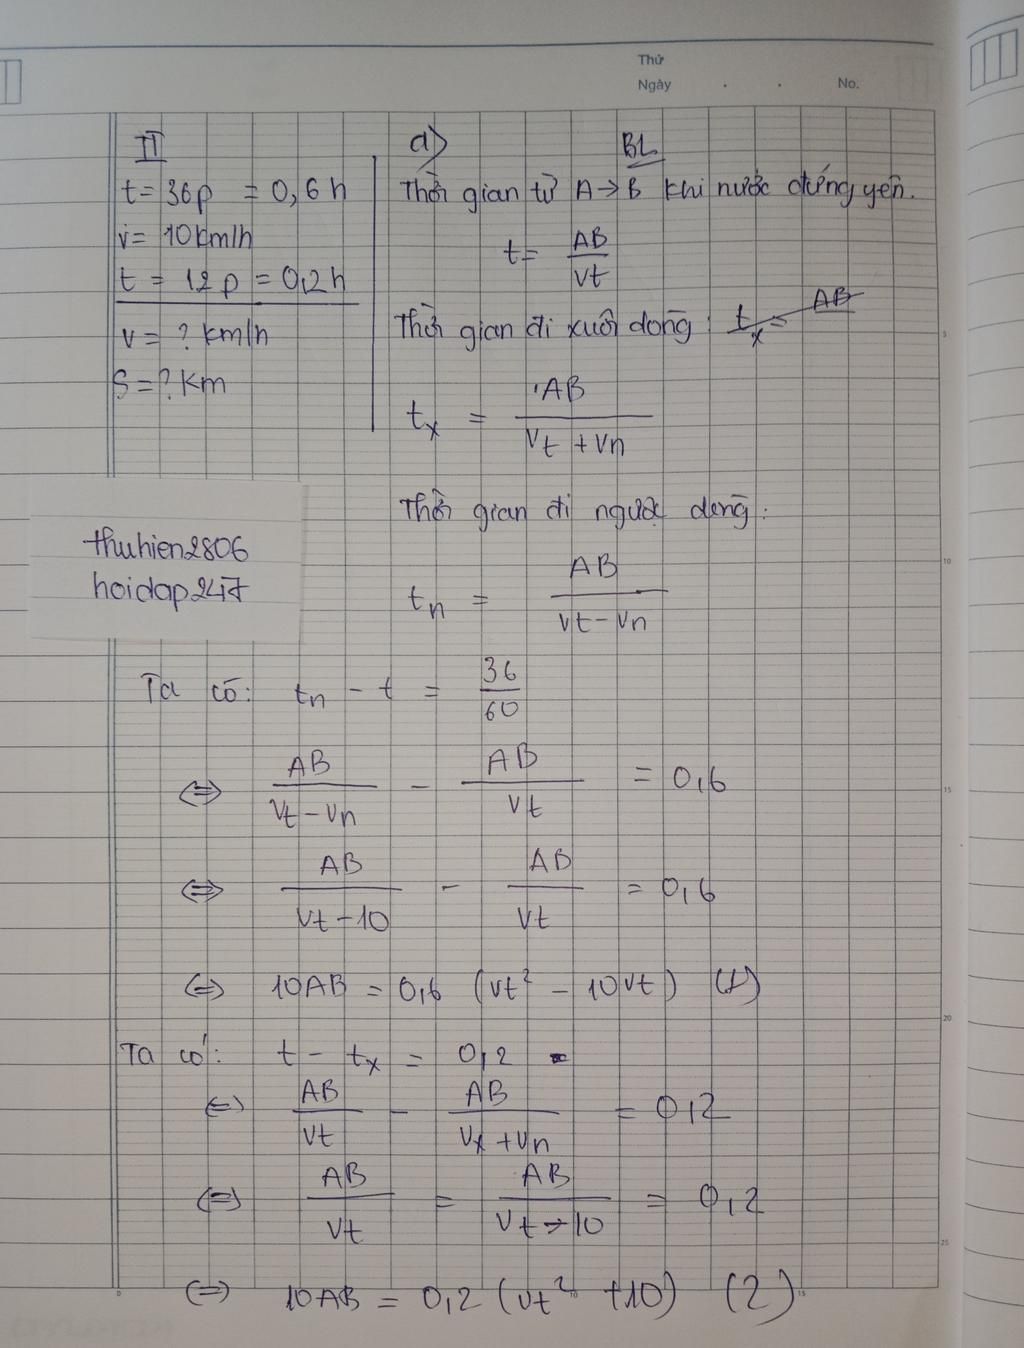 Thứ
Ngày . . No.
II
t = 36p = 0,6 h
v = 10km/h
t = 12p = 0,2h
v = ? km/h
S = ? Km
a) BL
Thời gian từ A → B khi nước đứng yên.
t = AB / Vt
Thời gian đi xuôi dòng: tx = AB
tx = AB / Vt + Vn
Thời gian đi ngược dòng:
tn = AB / Vt - Vn
thuhien2806
hoidap247
Ta có: tn - t = 36 / 60
⇔ AB / Vt - Vn - AB / Vt = 0,6
⇔ AB / Vt - 10 - AB / Vt = 0,6
⇔ 10AB = 0,6 (Vt² - 10Vt) (1)
Ta có: t - tx = 0,2
⇔ AB / Vt - AB / Vx + Vn = 0,2
⇔ AB / Vt = AB / Vt + 10 = 0,2
⇔ 10AB = 0,2 (Vt² + 10) (2)
5
10
15
20
25
0
10
15